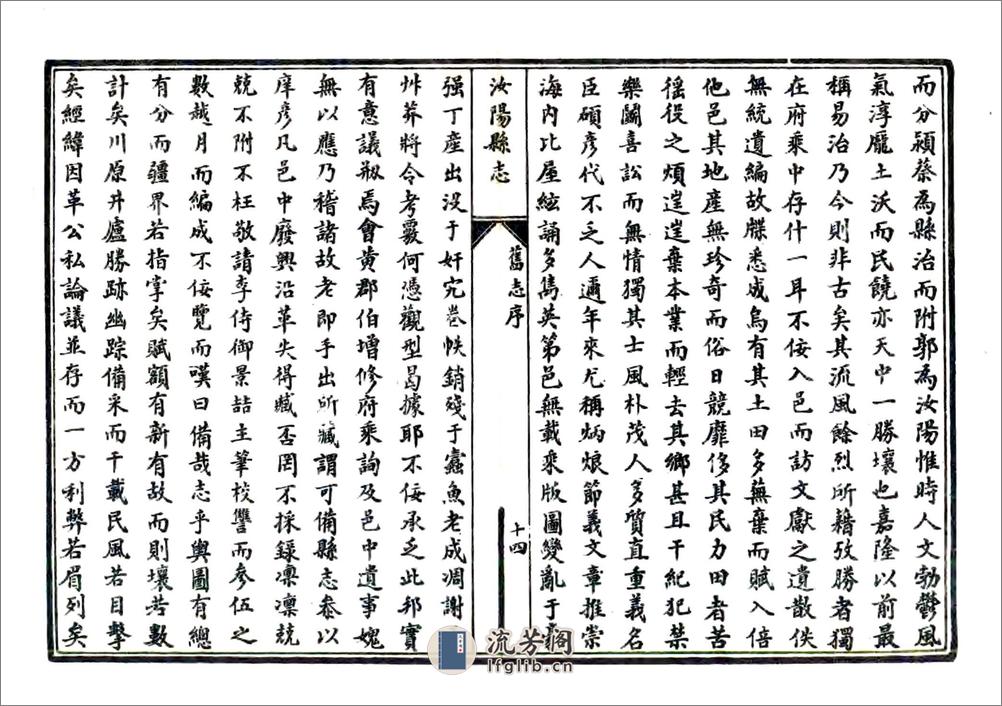 而分潁蔡為縣治而附郭為汝陽惟時人文勃鬱風
氣淳龐土沃而民饒亦天中一勝壤也嘉隆以前最
稱易治乃今則非古矣其流風餘烈所藉攷勝者獨
在府乘中存什一耳不佞入邑而訪文獻之遺散佚
無統遺編故牒悉成烏有其土田多蕪棄而賦入倍
他邑其地產無珍奇而俗日競靡侈其民力田者苦
徭役之煩遑遑棄本業而輕去其鄉甚且干紀犯禁
樂鬬喜訟而無情獨其士風朴茂人多質直重義名
臣碩彥代不乏人邇年來尤稱炳烺節義文章推崇
海內比屋絃誦多雋英第邑無載乘版圖變亂于
汝陽縣志
舊志序
十四
强丁產出沒于奸宄卷帙銷殘于蠹魚老成凋謝
艸莽將令考覈何憑觀型曷據耶不佞承乏此邦實
有意議剏焉會黃郡伯增修府乘詢及邑中遺事媿
無以應乃稽諸故老即手出所藏謂可備縣志叅以
庠彥凡邑中廢興沿革失得臧否罔不採錄凛凛兢
兢不附不枉敬請李侍御景喆主筆校讐而參伍之
數越月而編成不佞覽而嘆曰備哉志乎輿圖有總
有分而疆界若指掌矣賦額有新有故而則壤若數
計矣川原井廬勝跡幽踪備采而千載民風若目擊
矣經緯因革公私論議並存而一方利弊若眉列矣
流芳閣
lfglib.cn